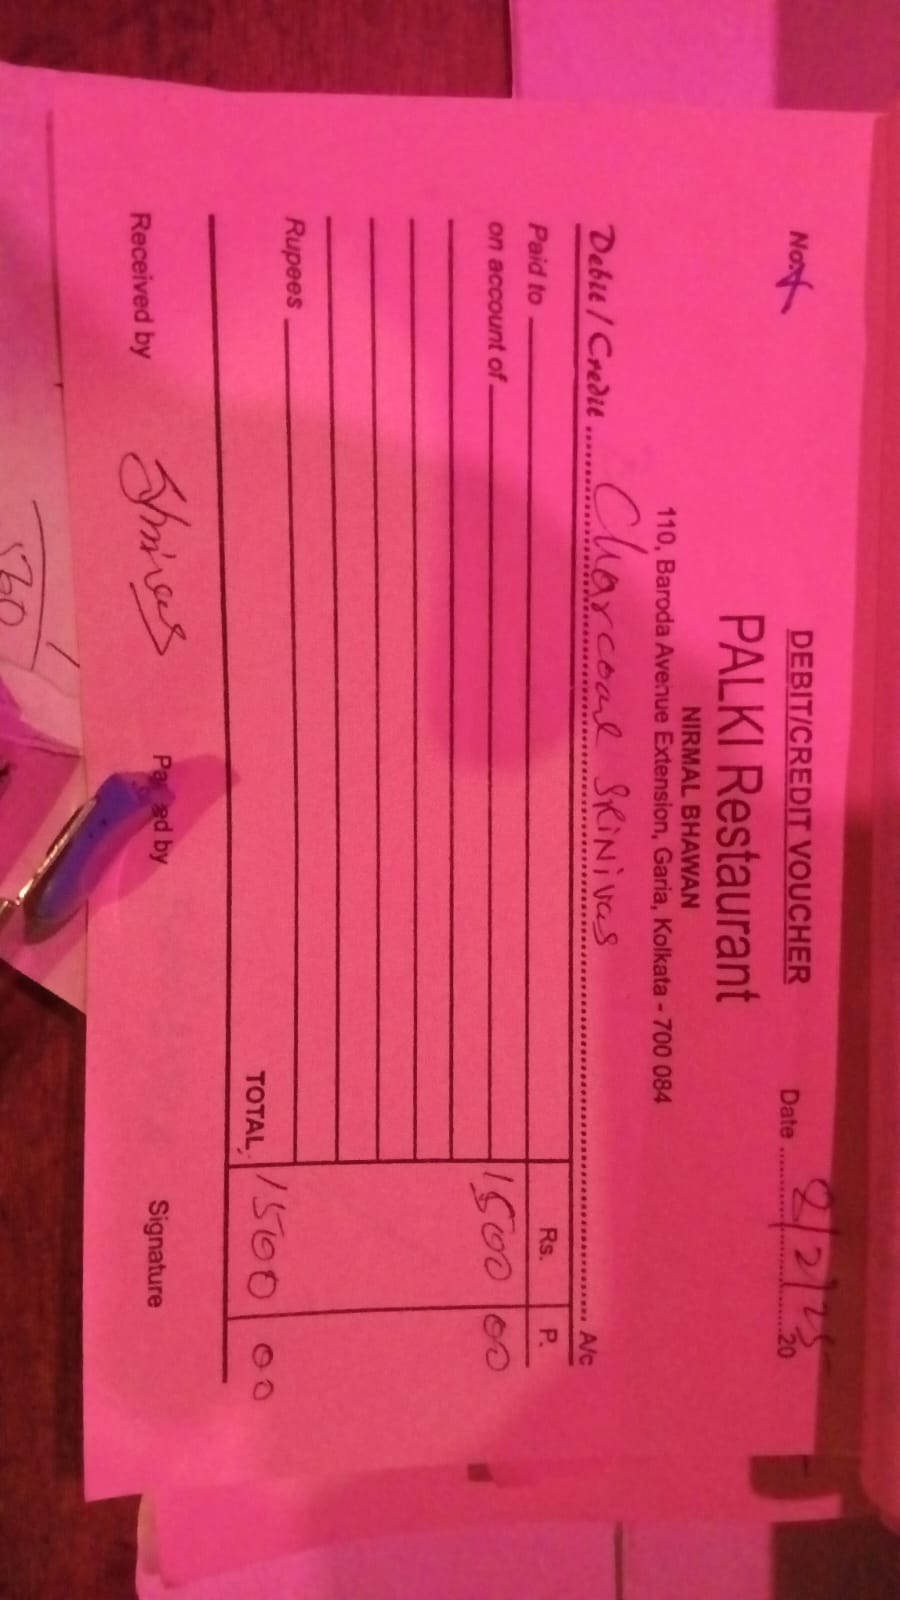 DEBIT/CREDIT VOUCHER
No. 4 Date 8/2/25 20
PALKI Restaurant
NIRMAL BHAWAN
110, Baroda Avenue Extension, Garia, Kolkata - 700 084
Debit / Credit Charcoal SRiNivas A/c
Paid to Rs. P.
on account of 1500 00
Rupees
TOTAL 1500 00
Received by Passed by Signature
560